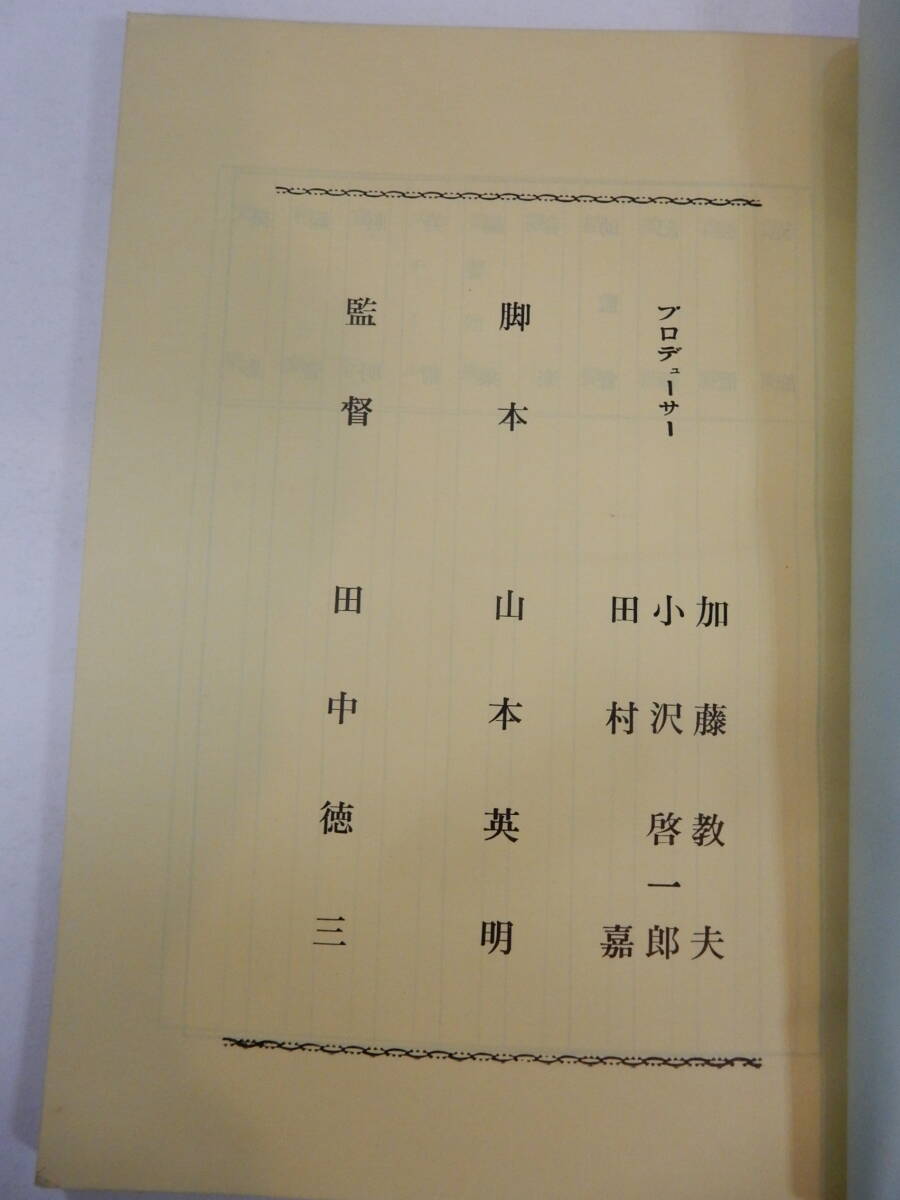 プロデューサー
加藤教夫
小沢啓一郎
田村嘉
脚本
山本英明
監督
田中徳三